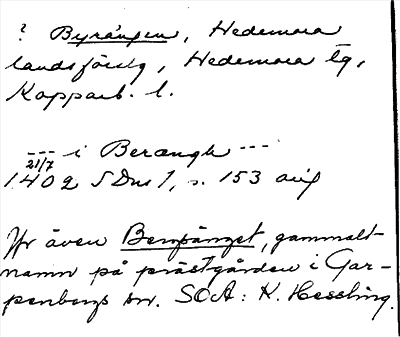 ? Byrängen, Hedemora
landsförslg, Hedemora tg,
Kopparb. l.
--- i Berængh ---
21/7
1402 SDns 1, s. 153 avs
Jfr även Berrpänget, gammalt
namn på prästgården i Gar-
penbergs sn. SOA: K. Hessling.